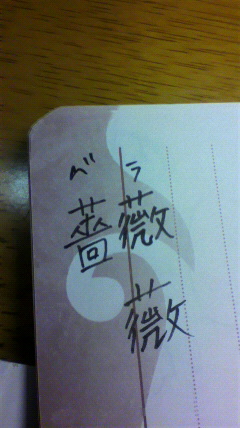 バラ
薔薇
薇